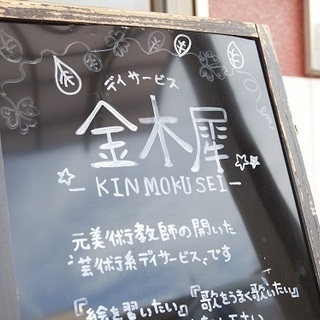 デイサービス
金木犀
- KINMOKUSEI -
元美術教師の開いた
芸術系デイサービスです
『絵を習いたい』『歌をうまく歌いたい』